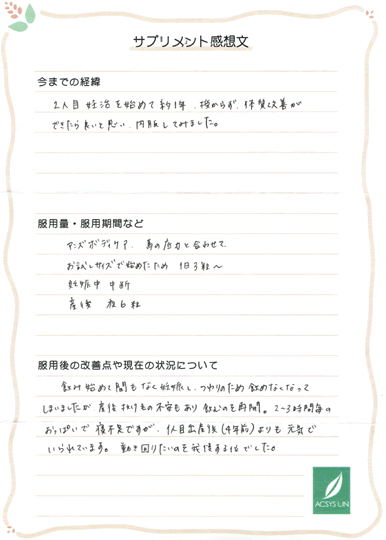 サプリメント感想文
今までの経緯
2人目妊活を始めて約1年、授からず、体質改善が
できたら良いと思い、内服してみました。
服用量・服用期間など
アンズボディケア、馬の活力と合わせて
お試しサイズで始めたため 1日3粒〜
妊娠中 中断
産後 夜6粒
服用後の改善点や現在の状況について
飲み始めて間もなく妊娠し、つわりのため飲めなくなって
しまいましたが 産後抜けもの不安もあり飲むのを再開。2〜3時間毎の
おっぱいで寝不足ですが、1人目出産後(4年前)よりも元気で
いられています。動き回りたいのを我慢する位でした。
ACSYS LIN